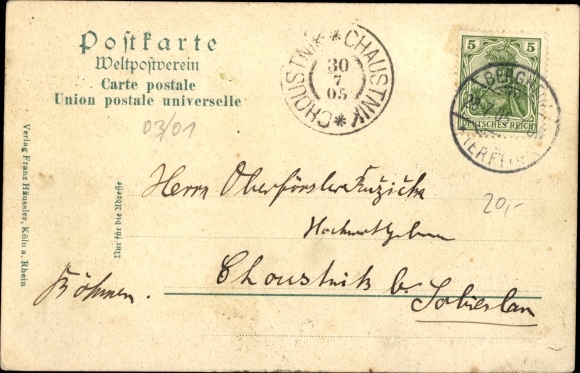 Postkarte
Weltpostverein
Carte postale
Union postale universelle
CHOUSTNIK * CHAUSTNIK *
30
7
05
5 5
DEUTSCHES REICH
03/01
Nur für die Adresse
Verlag Franz Häussler, Köln a. Rhein
Herrn Oberförster
Hochwohlgeboren
20,-
Choustnik b.
Böhmen.
Sobieslau